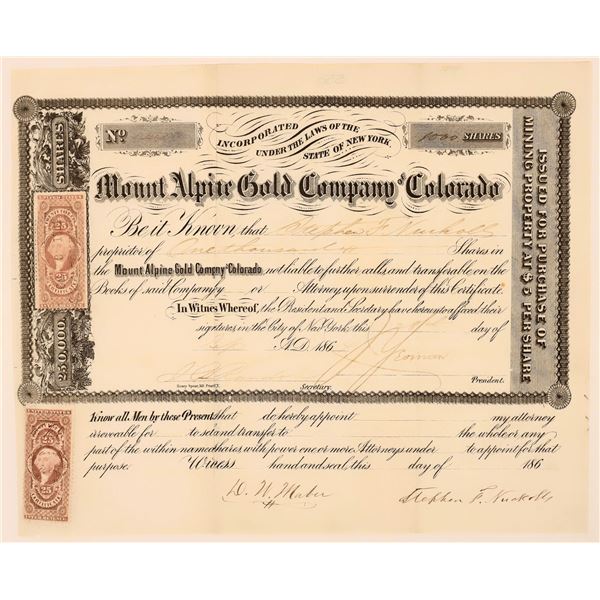 Nº
1000 SHARES
INCORPORATED UNDER THE LAWS OF THE
STATE OF NEW YORK.
Mount Alpine Gold Company of Colorado
Be it Known, that Stephen F. Nuckolls
proprietor of One thousand Shares in
the Mount Alpine Gold Company of Colorado not liable to further calls and transferable on the
Books of said Company by or Attorney upon surrender of this Certificate.
In Witnes Whereof, the President and Secretary have hereunto affixed their
signatures in the City of New York this day of
A.D. 186
Secretary.
President.
SHARES
250,000
ISSUED FOR PURCHASE OF
MINING PROPERTY AT $5 PER SHARE
25
25
Know all Men by these Presents that do hereby appoint my attorney
irrevocable for to set and transfer to the whole or any
part of the within named shares with power one or more Attorneys under to appoint for that
purpose. Witness hand and seal, this day of 186
D. N. Maber
Stephen F. Nuckolls
25
25